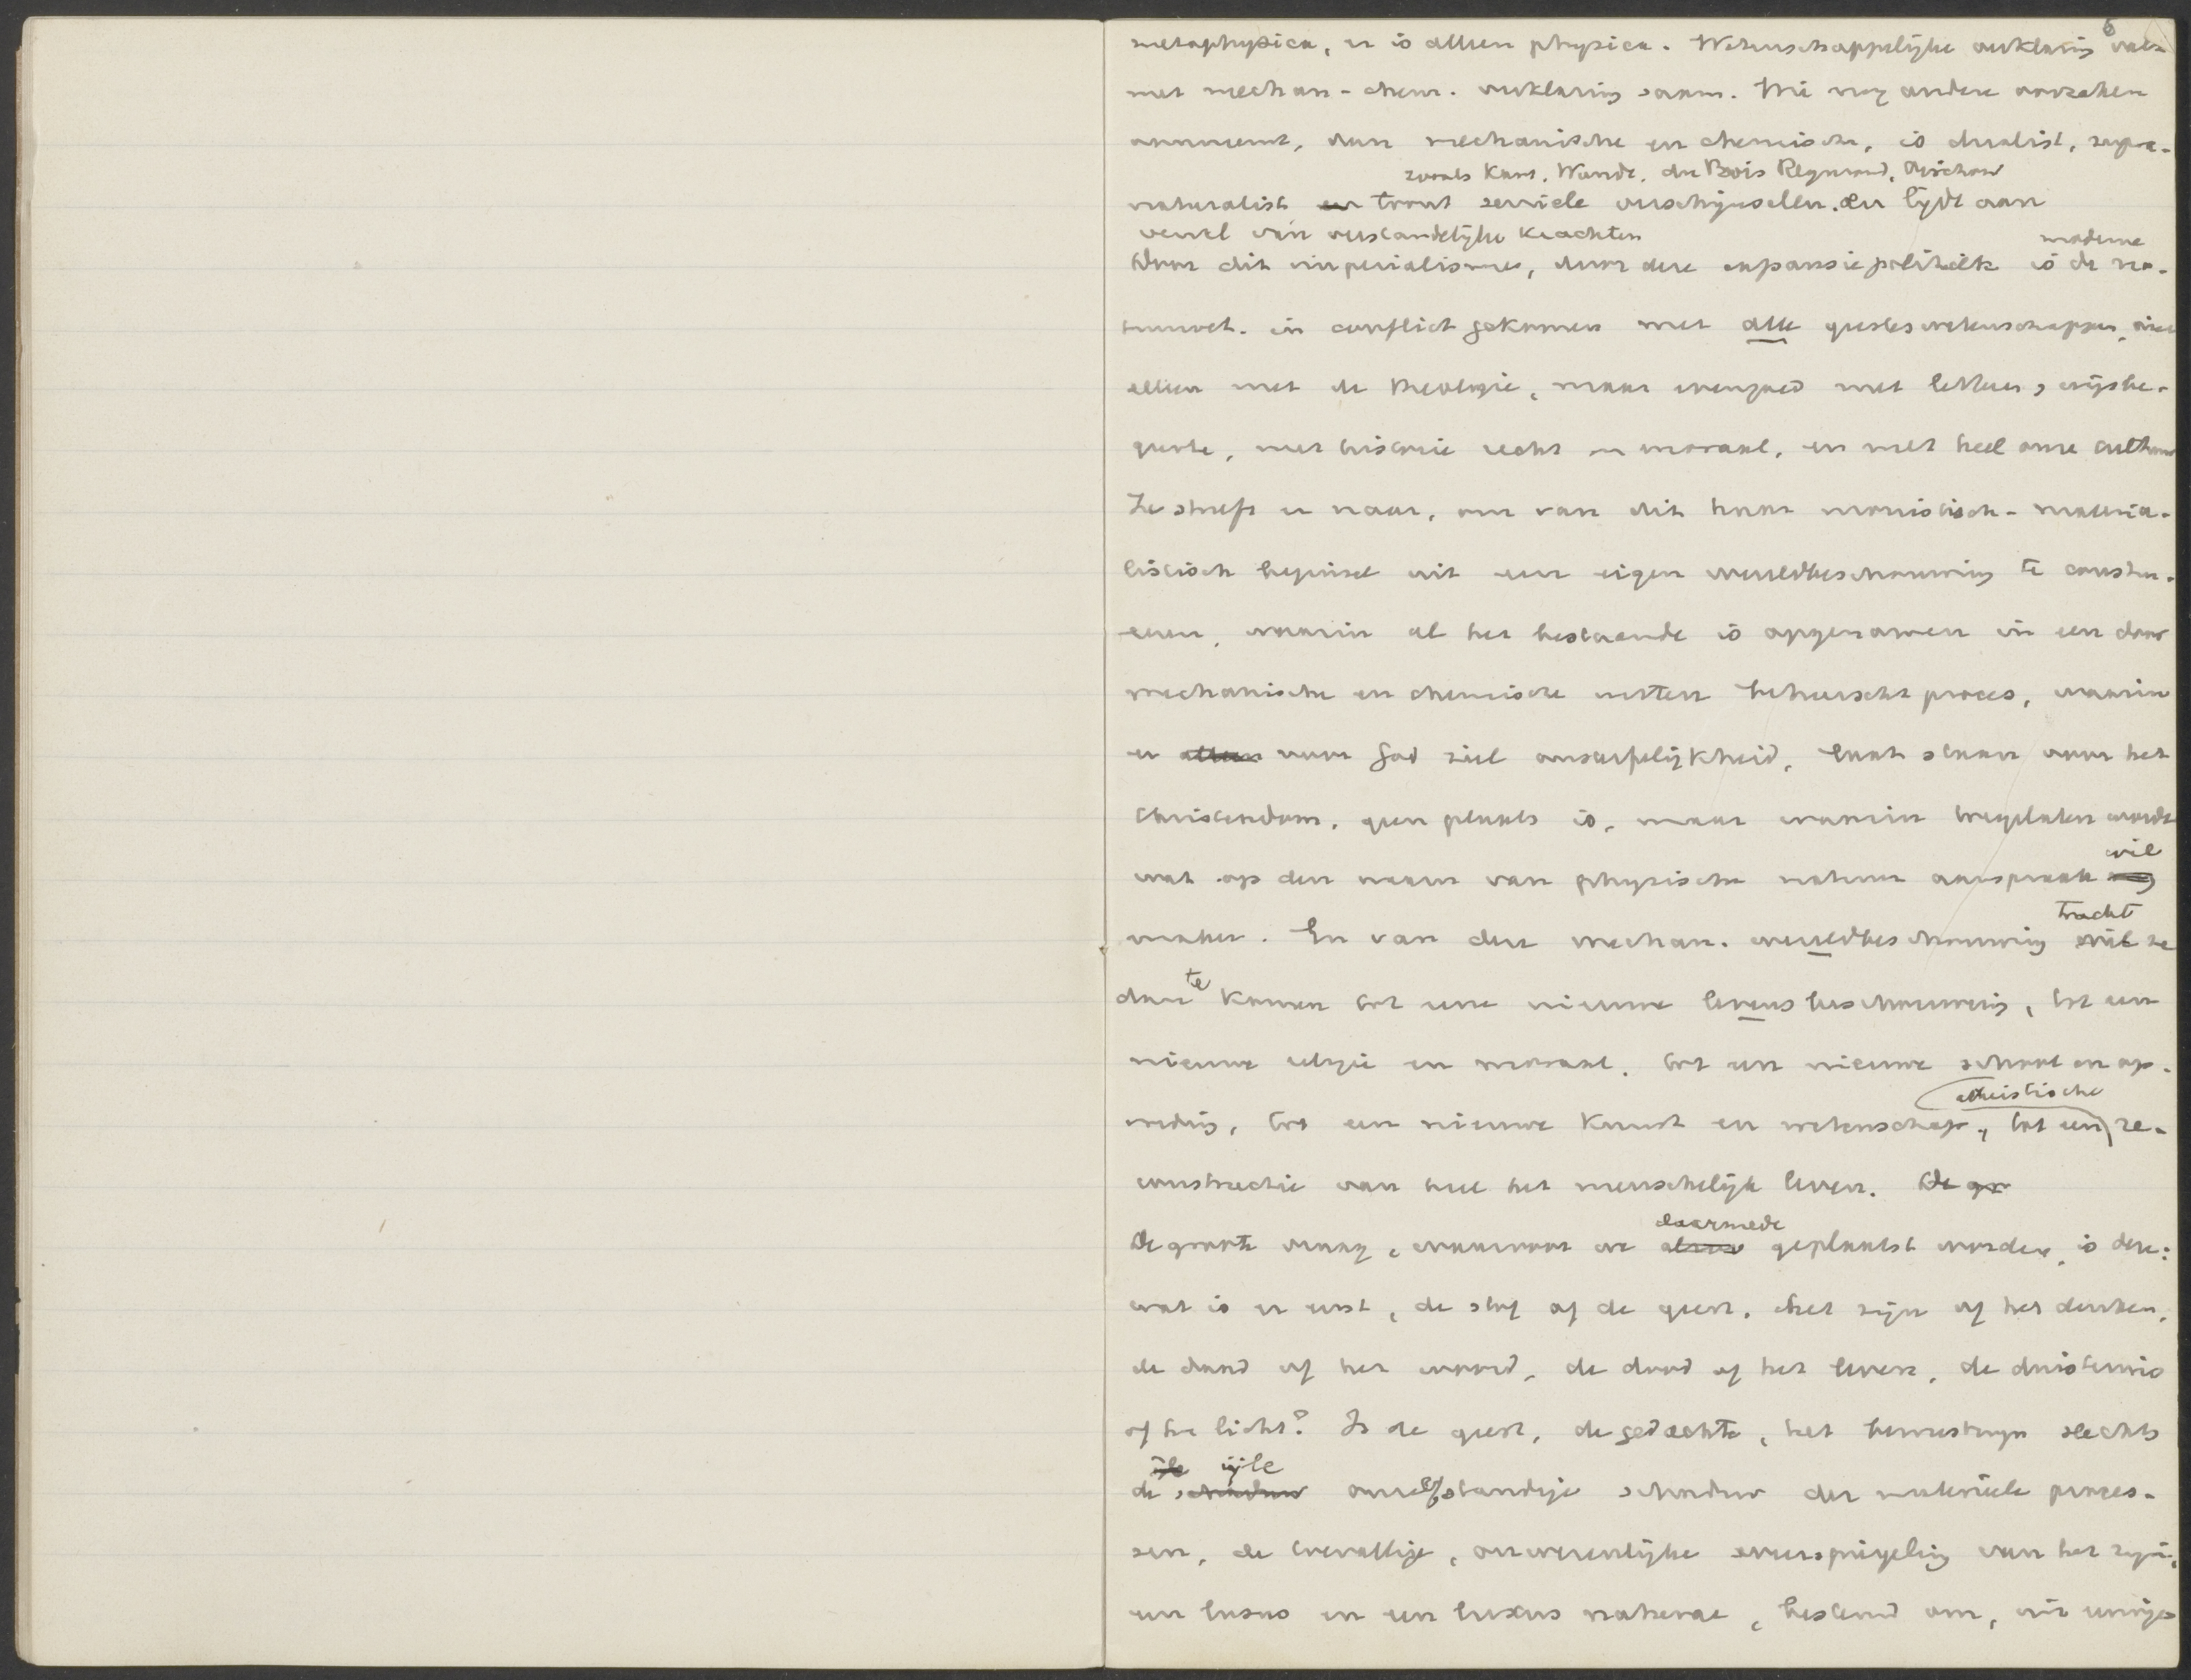 6
metaphysica, er is alleen physica. Wetenschappelijke verklaring valt
met mechan.-chem. verklaring saam. Wie nog andere oorzaken
aanneemt, dan mechanische en chemische, is dualist, supra-
zooals Kant, Wundt, du Bois Reymond, Virchow
naturalist en toont seniele verschijnselen. En lijdt aan
verval van verstandelijke krachten
Door dit imperialisme, door deze expansiepolitiek is de moderne na-
tuurwet. in conflict gekomen met alle geesteswetenschappen, niet
alleen met de theologie, maar evengoed met letteren, wijsbe-
geerte, met historie recht en moraal, en met heel onze cultuur
Ze streeft er naar, om van dit haar monistisch-materia-
listisch beginsel uit een eigen wereldbeschouwing te constru-
eeren, waarin al het bestaande is opgenomen in een door
mechanische en chemische wetten beheerscht proces, waarin
er alleen voor God ziel onsterfelijkheid, laat staan voor het
Christendom, geen plaats is, maar waarin toegelaten wordt
wil
wat op den naam van physische natuur aanspraak mag
maken. En van deze mechan. wereldbeschouwing wil tracht ze
dan te komen tot eene nieuwe levensbeschouwing, tot een
nieuwe religie en moraal, tot een nieuwe school en op-
atheistische
voeding, tot een nieuwe kunst en wetenschap, tot een re-
constructie van heel het menschelijk leven. De gr
De groote vraag, waarvoor we daarmede geplaatst worden, is deze:
wat is er eerst, de stof of de geest, het zijn of het denken,
de daad of het woord, de dood of het leven, de duisternis
of het licht? Is de geest, de gedachte, het bewustzijn slechts
ijle ijle
de schaduw onzelfstandige schaduw der materieele proces-
sen, de toevallige, onwezenlijke weerspiegeling van het zijn,
een lusus en een luxus naturae, bestemd om, na eenige